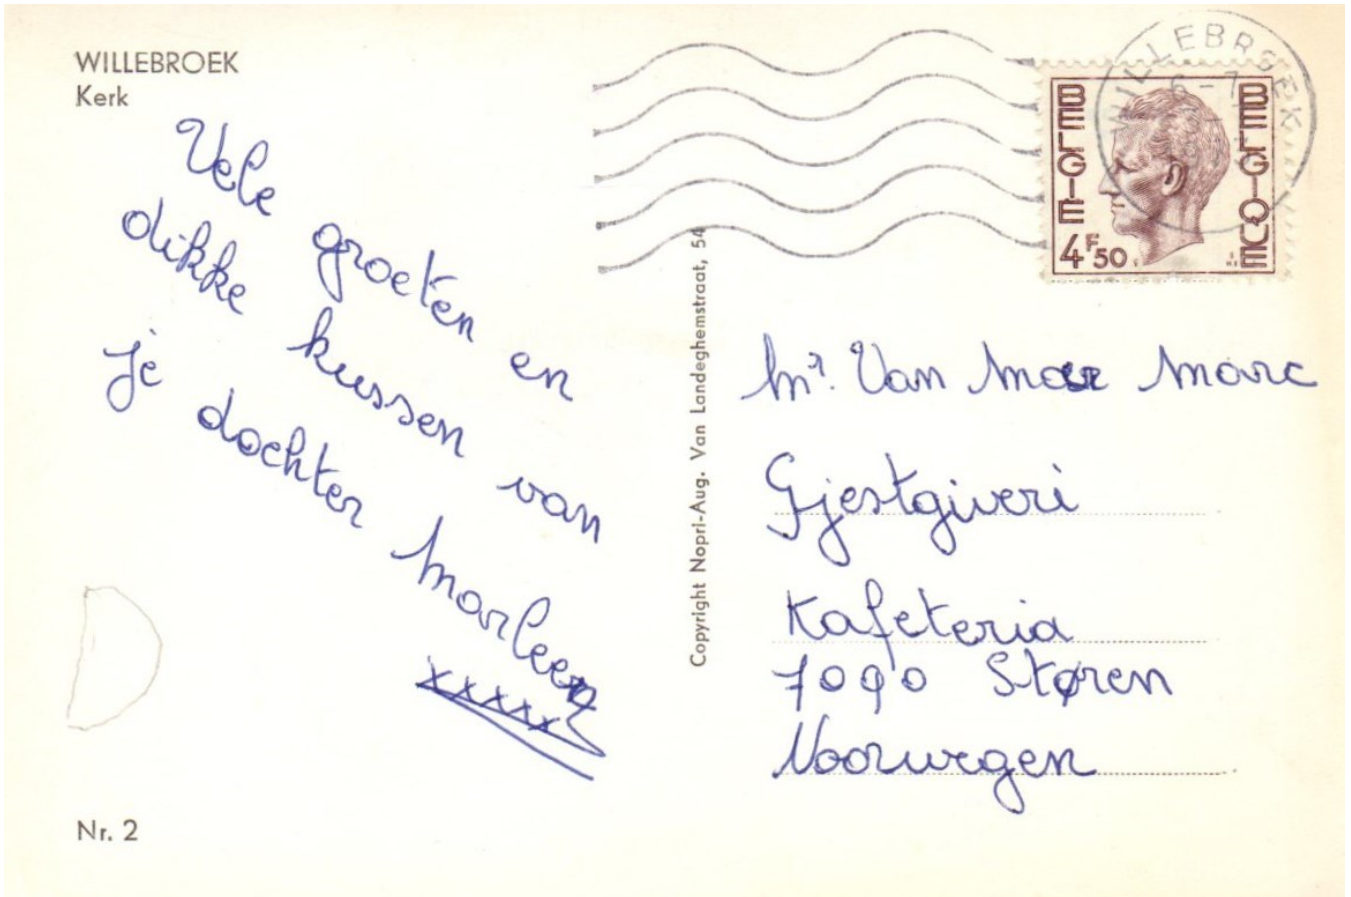 WILLEBROEK
Kerk
Vele groeten en
dikke kussen van
je dochter Marleen
xxxxx
Nr. 2
Copyright Nopri-Aug. Van Landeghemstraat, 54
WILLEBROEK
6-7
BELGIE
BELGIQUE
4F50
Mr. Van Mar Marc
Gjestgiveri
Kafeteria
7090 Støren
Noorwegen